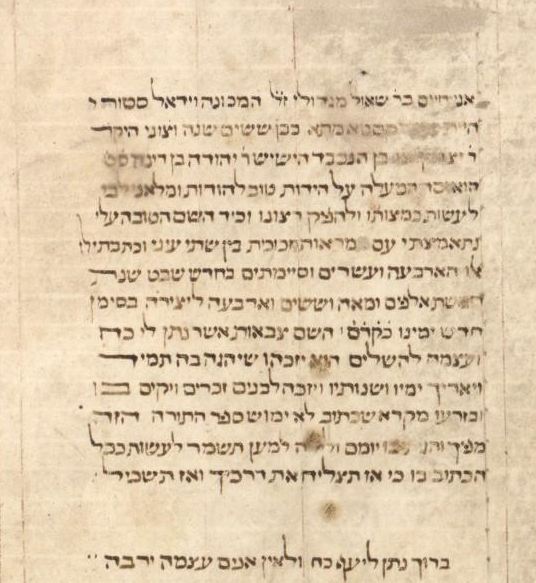 אני חיים בר שאול מגדולי ז״ל המכונה וידאל סטורי י
היית מתא כבן ששים שנה וצוני היקר
ר׳ יצחק בן הנכבד הישיש ר׳ יהודה בן
המעלה על הידות טוב להודות ומלאני לבי
לעשות כמצותו ולהפיק רצונו וכיד השם הטובה עלי
נתאמצתי עם מראות הזכוכית בין שתי עיני וכתבתי לו
אלו הארבעה ועשרים וסיימתים בחדש שבט שנת
חמשת אלפים ומאה וששים וארבעה ליצירה בסימן
חדש ימינו כקדם השם צבאות אשר נתן לי כח
ועצמה להשלים הוא יזכהו שיהגה בה תמיד
ויאריך ימיו ושנותיו ויזכה לבנים זכרים ויקים בו
ובזרעו מקרא שכתוב לא ימוש ספר התורה הזה
מפיך והגית בו יומם ולילה למען תשמר לעשות ככל
הכתוב בו כי אז תצליח את דרכיך ואז תשכיל
ברוך נותן ליעף כח ולאין אונים עצמה ירבה